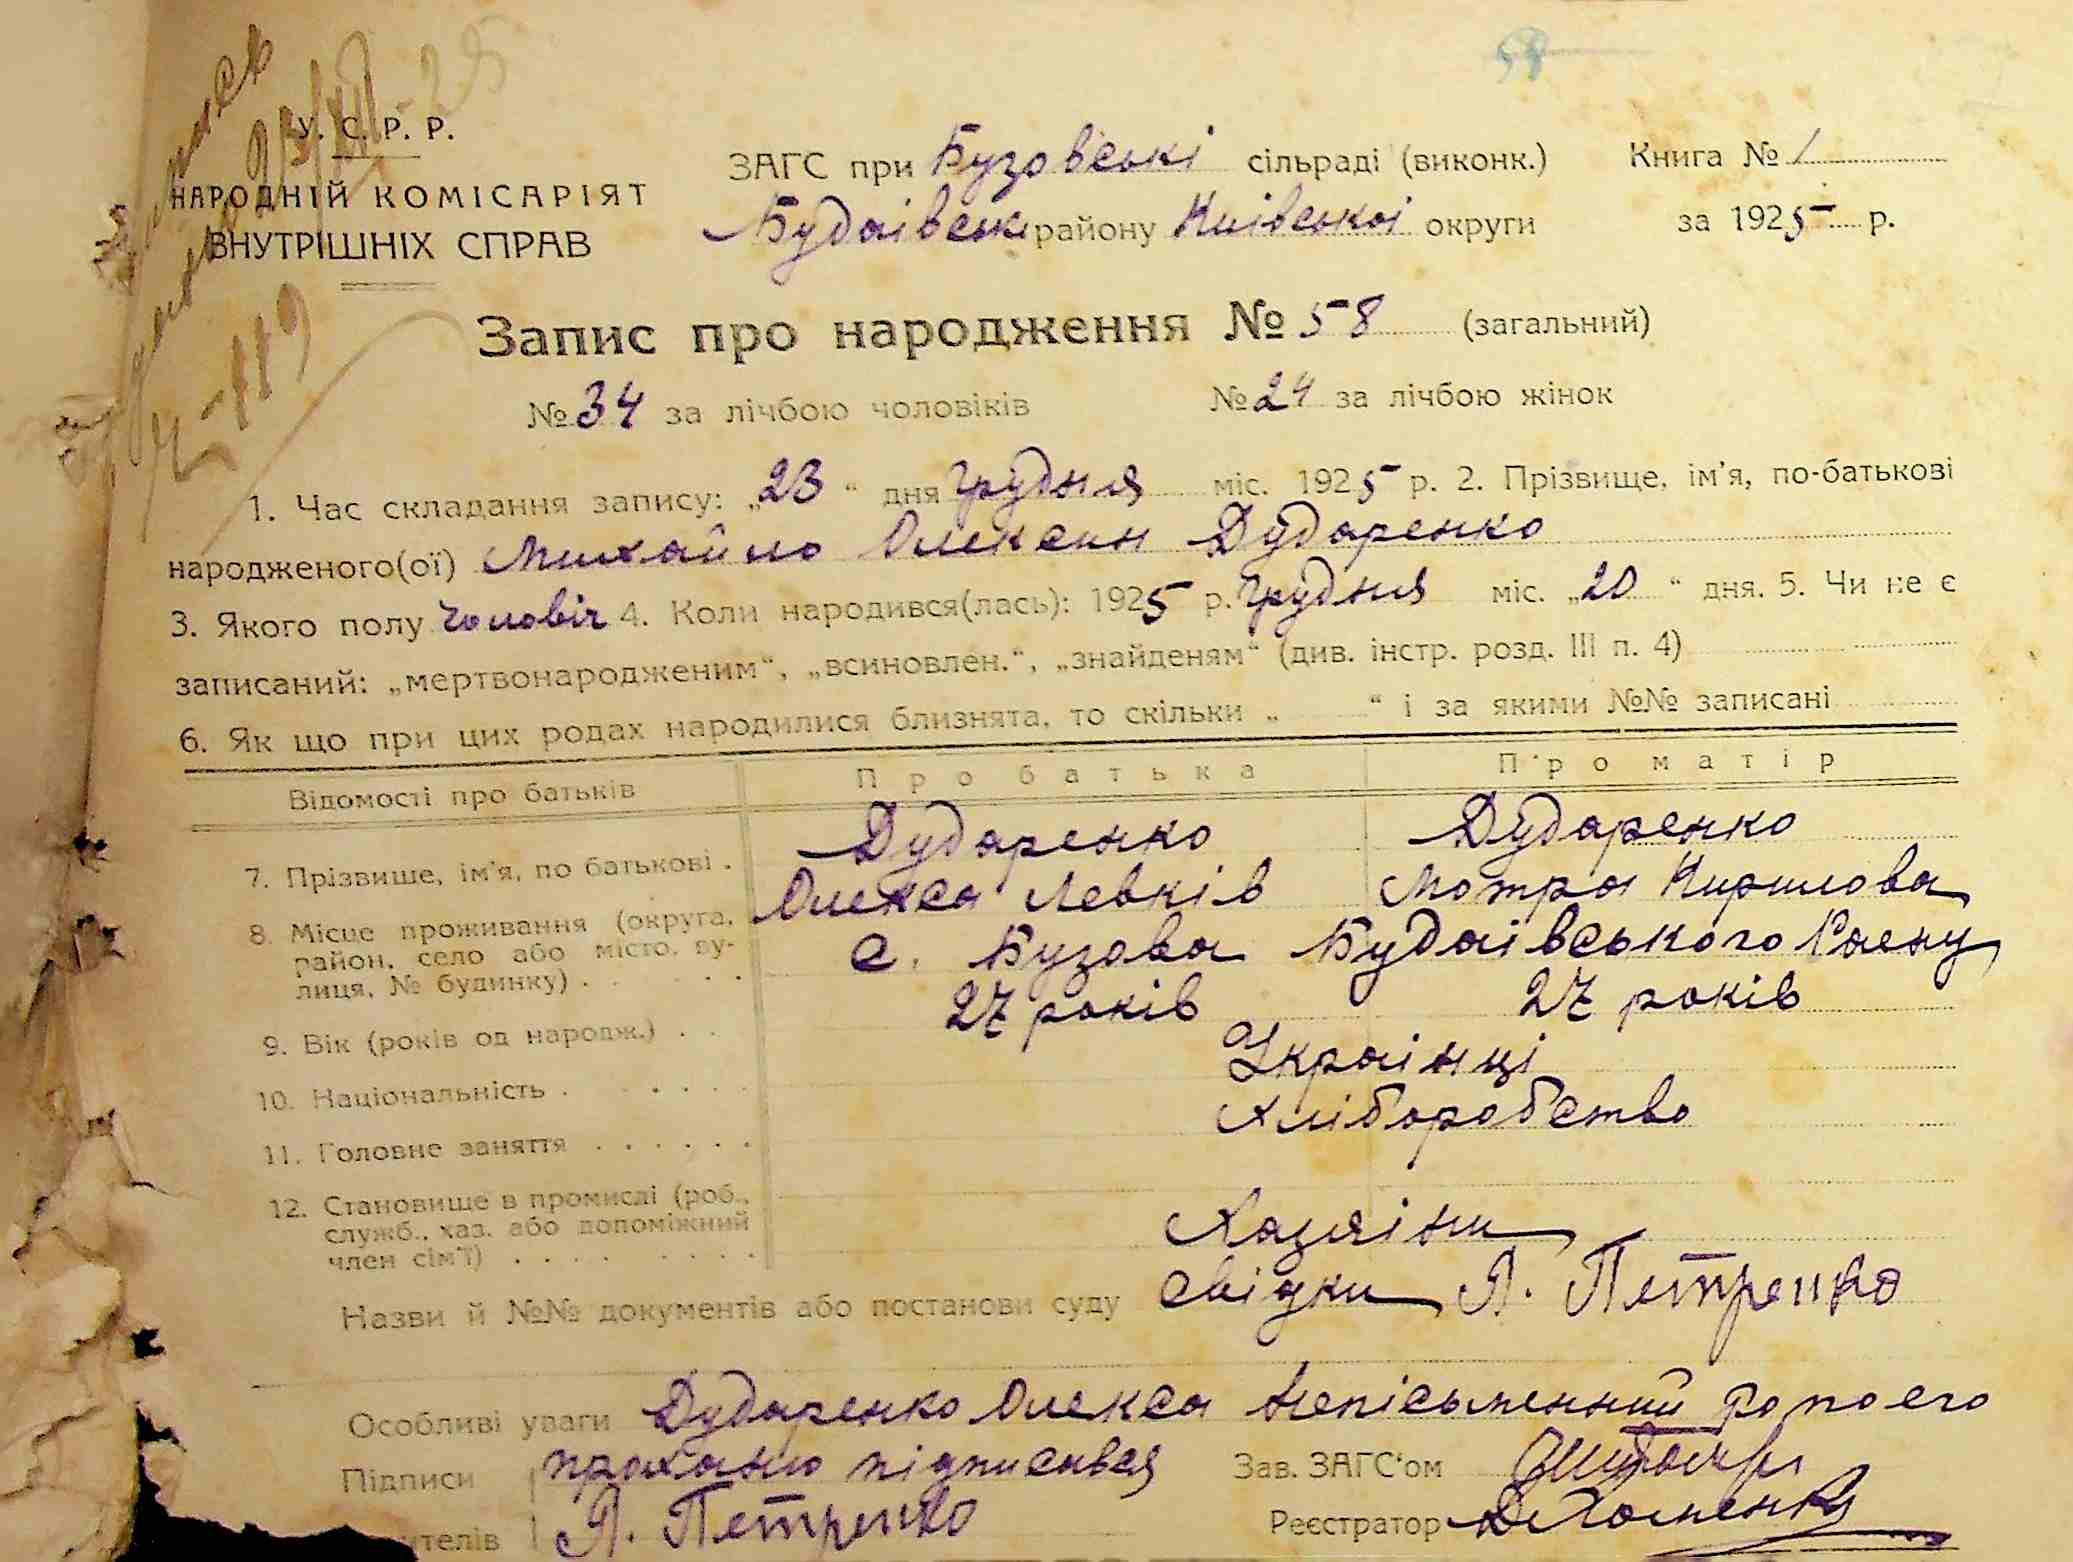 58
23/XII-25
У. С. Р. Р.
НАРОДНІЙ КОМІСАРІЯТ
ВНУТРІШНІХ СПРАВ
ЗАГС при Бузовські сільраді (виконк.) Книга № 1
Будаівськ району Київськоі округи за 1925 р.
Запис про народження № 58 (загальний)
№ 34 за лічбою чоловіків № 24 за лічбою жінок
1. Час складання запису: „23“ дня Грудня міс. 1925 р. 2. Прізвище, ім'я, по-батькові
народженого(ої) Михайло Олексин Дударенко
3. Якого полу Чоловіч 4. Коли народився(лась): 1925 р. Грудня міс. „20“ дня. 5. Чи не є
записаний: „мертвонародженим“, „всиновлен.“, „знайденям“ (див. інстр. розд. III п. 4)
6. Як що при цих родах народилися близнята, то скільки „ “ і за якими №№ записані
Відомості про батьків Про батька Про матір
7. Прізвище, ім'я, по батькові . Дударенко Дударенко
Олекса Левків Мотря Кирилова
8. Місце проживання (округа, район, село або місто, ву-
лиця, № будинку) . . . . с. Бузова Будаівського Раену
9. Вік (років од народж.) . . 27 років 27 років
10. Національність . . . . . Українці
11. Головне заняття . . . . . . Хліборобство
12. Становище в промислі (роб.,
служб., хаз. або допоміжний
член сім'ї) . . . . . . . . Хазяіни
Назви й №№ документів або постанови суду Свідки Я. Петренко
Особливі уваги Дударенко Олекса Непісьменний
Підписи проханню підписався Зав. ЗАГС'ом
Я. Петренко Реєстратор Хоменко